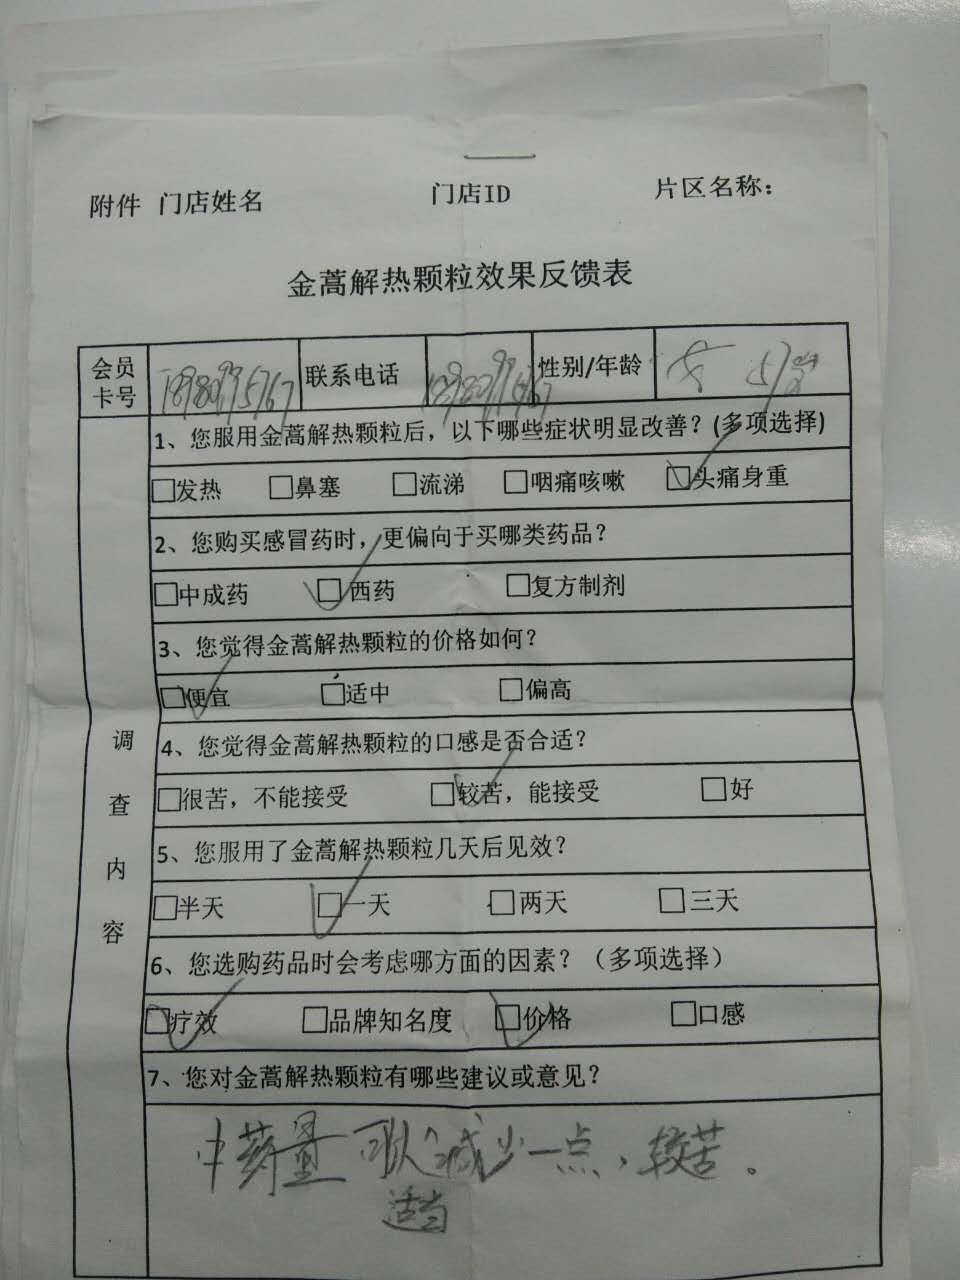 附件 门店姓名 门店ID 片区名称：
金蒿解热颗粒效果反馈表
会员卡号 联系电话 性别/年龄 女
1、您服用金蒿解热颗粒后，以下哪些症状明显改善？(多项选择)
□发热 □鼻塞 □流涕 □咽痛咳嗽 □头痛身重
2、您购买感冒药时，更偏向于买哪类药品？
□中成药 □西药 □复方制剂
3、您觉得金蒿解热颗粒的价格如何？
□便宜 □适中 □偏高
调查内容
4、您觉得金蒿解热颗粒的口感是否合适？
□很苦，不能接受 □较苦，能接受 □好
5、您服用了金蒿解热颗粒几天后见效？
□半天 □一天 □两天 □三天
6、您选购药品时会考虑哪方面的因素？（多项选择）
□疗效 □品牌知名度 □价格 □口感
7、您对金蒿解热颗粒有哪些建议或意见？
中药量可以减少一点，较苦。
适当